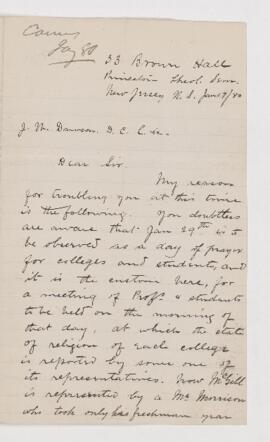 Jan 80
33 Brown Hall
Princeton Theol. Sem.
New Jersey U.S. Jan 7/80
J. W. Dawson. D.C.L. &c.
Dear Sir.
My reason
for troubling you at this time
is the following. You doubtless
are aware that Jan 29th is to
be observed as a day of prayer
for colleges and students, and
it is the custom here, for
a meeting of Profs. & students
to be held on the morning of
that day, at which the state
of religion of each college
is reported by some one of
its representatives. Now McGill
is represented by a Mr Morrison
who took only his freshman year